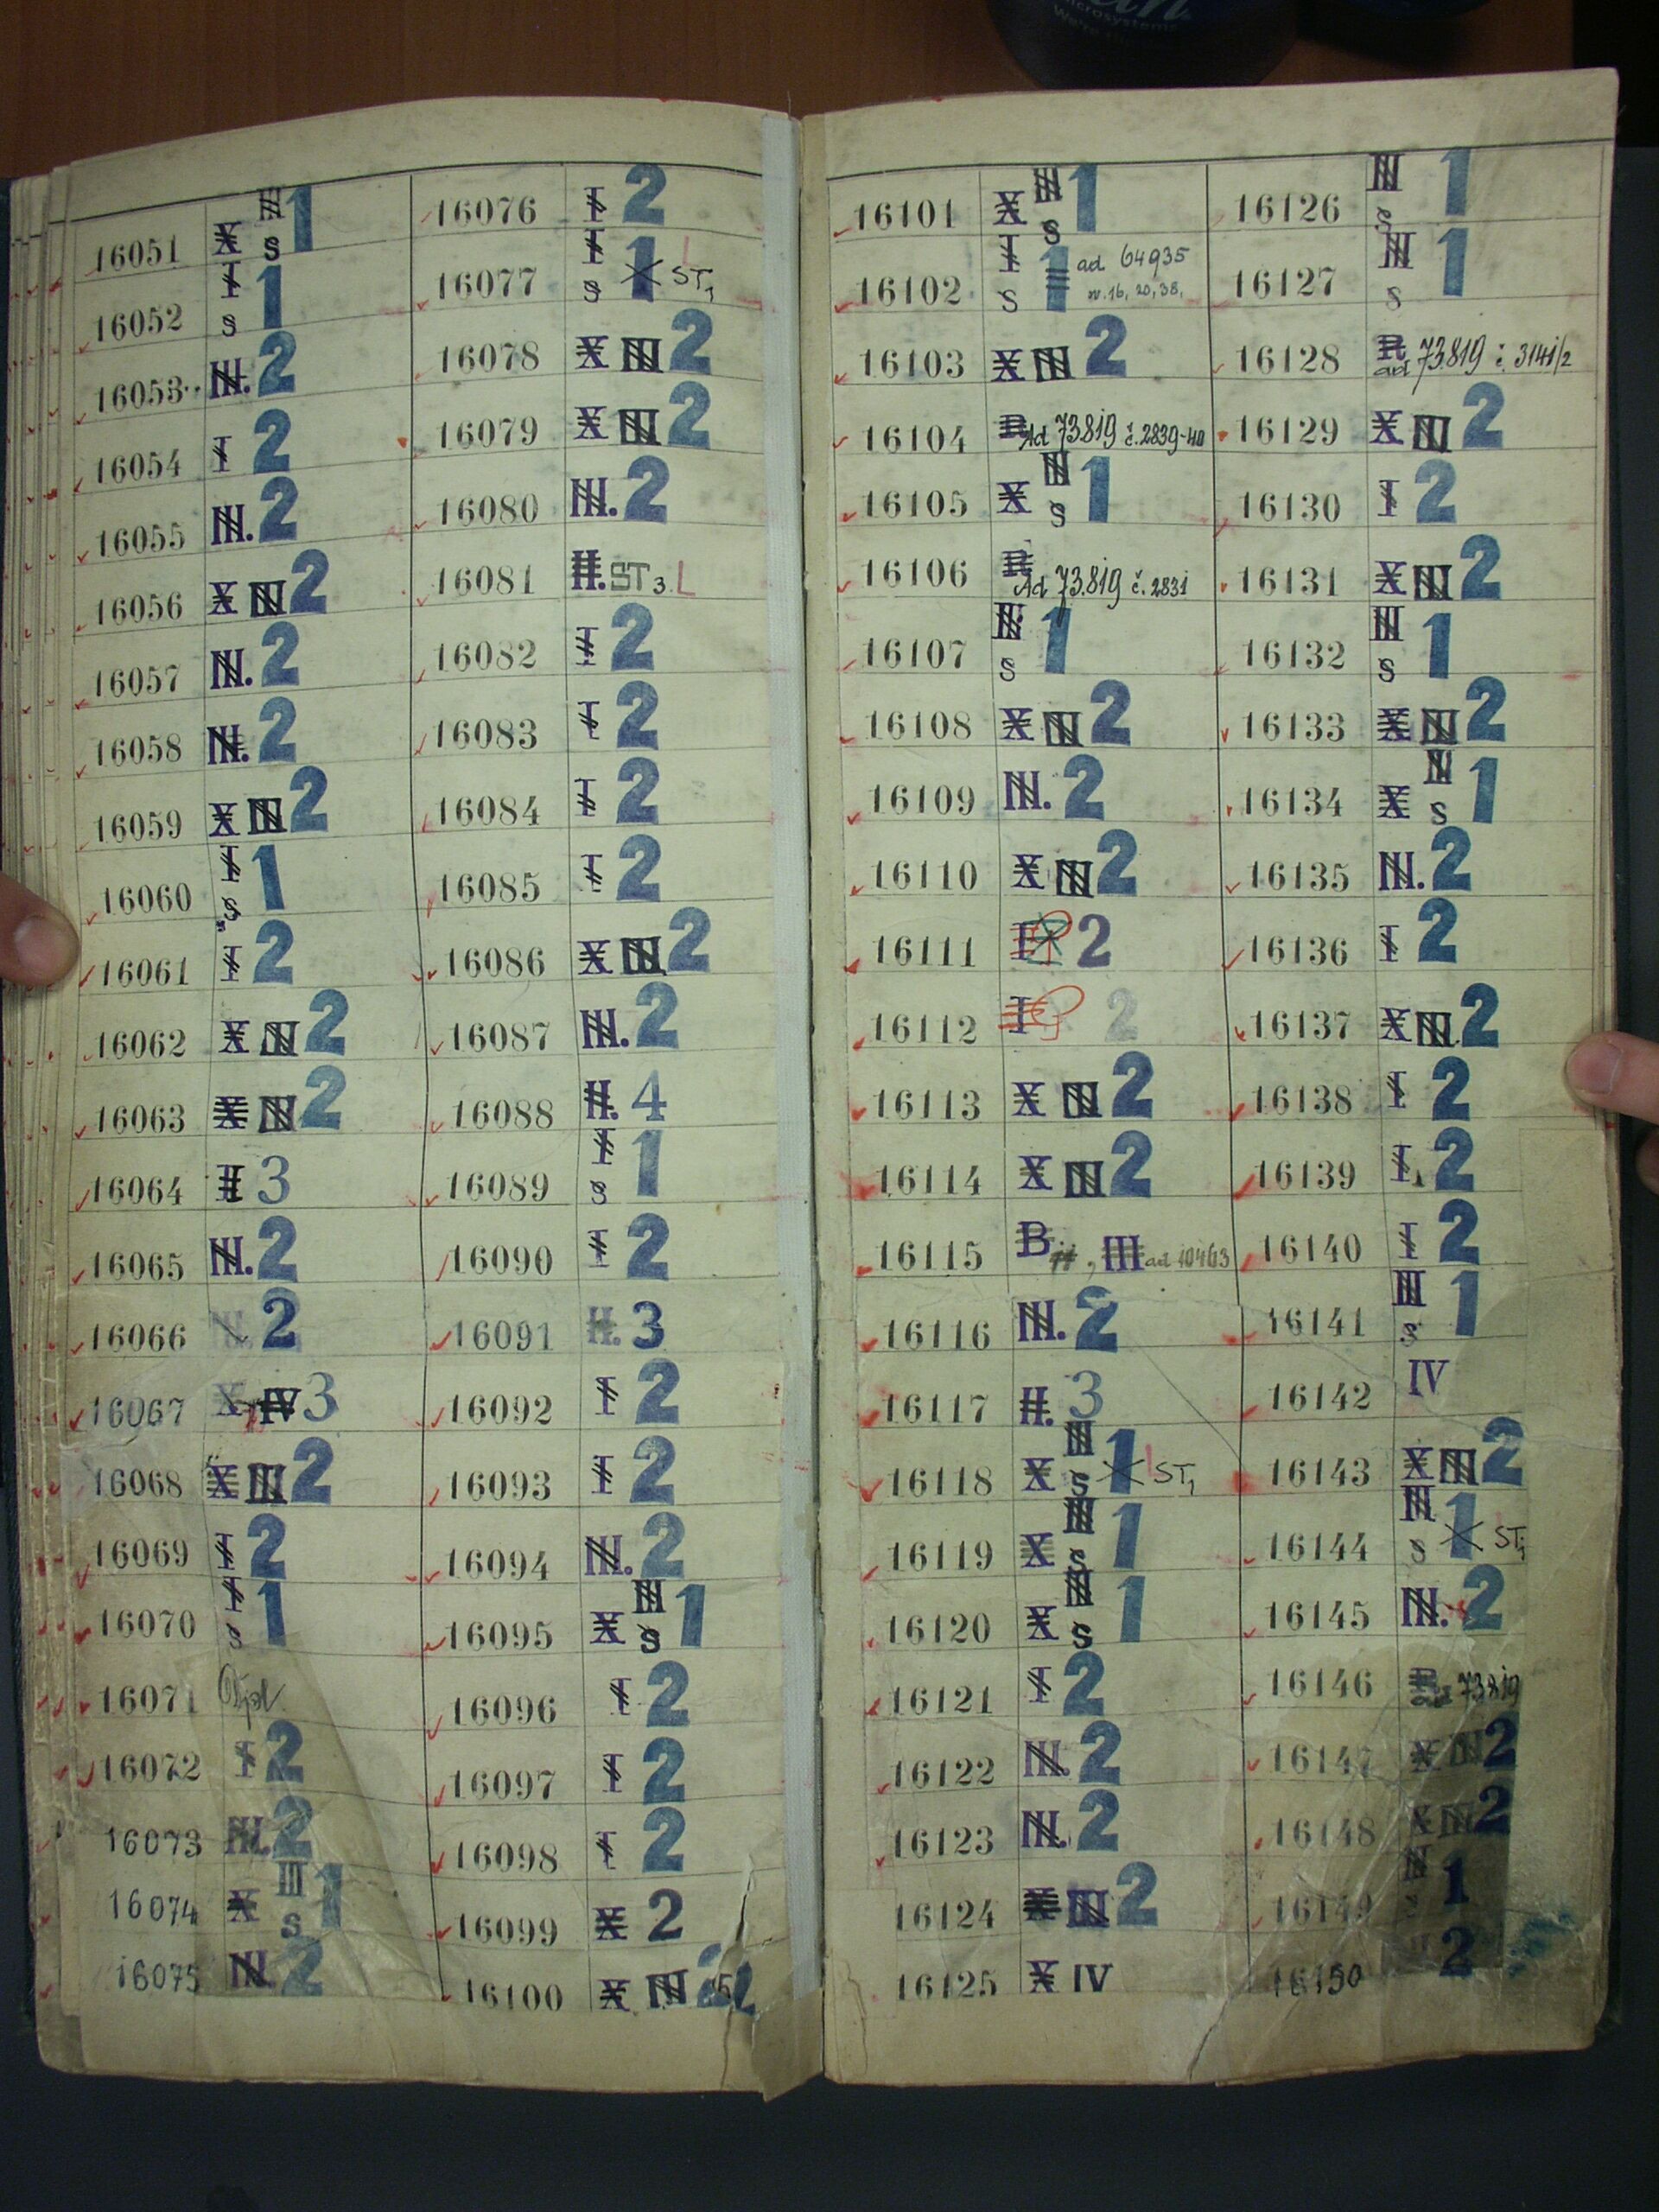 16051 X III s 1
16052 I s 1
16053 III. 2
16054 I 2
16055 III. 2
16056 X III 2
16057 III. 2
16058 III. 2
16059 X III 2
16060 I s 1
16061 I 2
16062 X III 2
16063 X III 2
16064 II 3
16065 III. 2
16066 2
16067 X IV 3
16068 X III 2
16069 I 2
16070 I s 1
16071
16072 I 2
16073 III. 2
16074 X III s 1
16075 III. 2
16076 I 2
16077 I s 1 ST1
16078 X III 2
16079 X III 2
16080 III. 2
16081 II. ST3. L
16082 I 2
16083 I 2
16084 I 2
16085 I 2
16086 X III 2
16087 III. 2
16088 II. 4
16089 I s 1
16090 I 2
16091 II. 3
16092 I 2
16093 I 2
16094 III. 2
16095 X III s 1
16096 I 2
16097 I 2
16098 I 2
16099 X 2
16100 X III 2
16101 X III s 1
16102 I s 1 ad 64935
n. 16, 20, 38,
16103 X III 2
16104 Ad 73819 č. 2839-40
16105 X III s 1
16106 Ad 73.819 č. 2831
16107 III s 1
16108 X III 2
16109 III. 2
16110 X III 2
16111 I 2
16112 I 2
16113 X III 2
16114 X III 2
16115 B , III ad 10463
16116 III. 2
16117 II. 3
16118 X III s 1 ST1
16119 X III s 1
16120 X III s 1
16121 I 2
16122 III. 2
16123 III. 2
16124 X III 2
16125 X IV
16126 III s 1
16127 III s 1
16128 R ad 73.819 č. 3141/2
16129 X III 2
16130 I 2
16131 X III 2
16132 III s 1
16133 X III 2
16134 X III s 1
16135 III. 2
16136 I 2
16137 X III. 2
16138 I 2
16139 I 2
16140 I 2
16141 III s 1
16142 IV
16143 X III 2
16144 III s 1 ST1
16145 III. 2
16146 73819
16147 X III 2
16148 X III 2
16149 1
16150 2